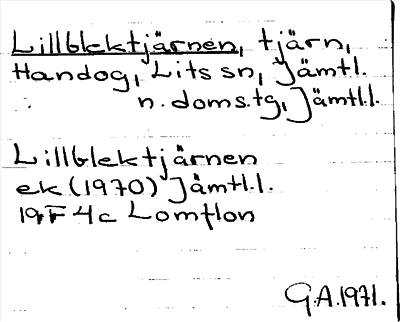 Lillblektjärnen, tjärn,
Handog, Lits sn, Jämtl.
n. doms.tg, Jämtl.l.
Lillblektjärnen
ek (1970) Jämtl.l.
19F 4c Lomtlon
G.A. 1971.